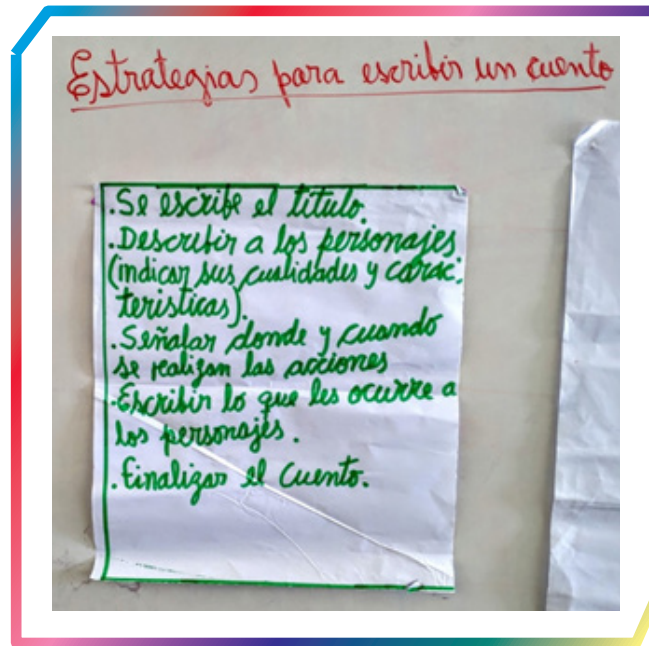 Estrategias para escribir un cuento
.Se escribe el titulo.
.Describir a los personajes
(indicar sus cualidades y carac.
teristicas).
.Señalar donde y cuando
se realizan las acciones
.Escribir lo que les ocurre a
los personajes.
.Finalizar el Cuento.